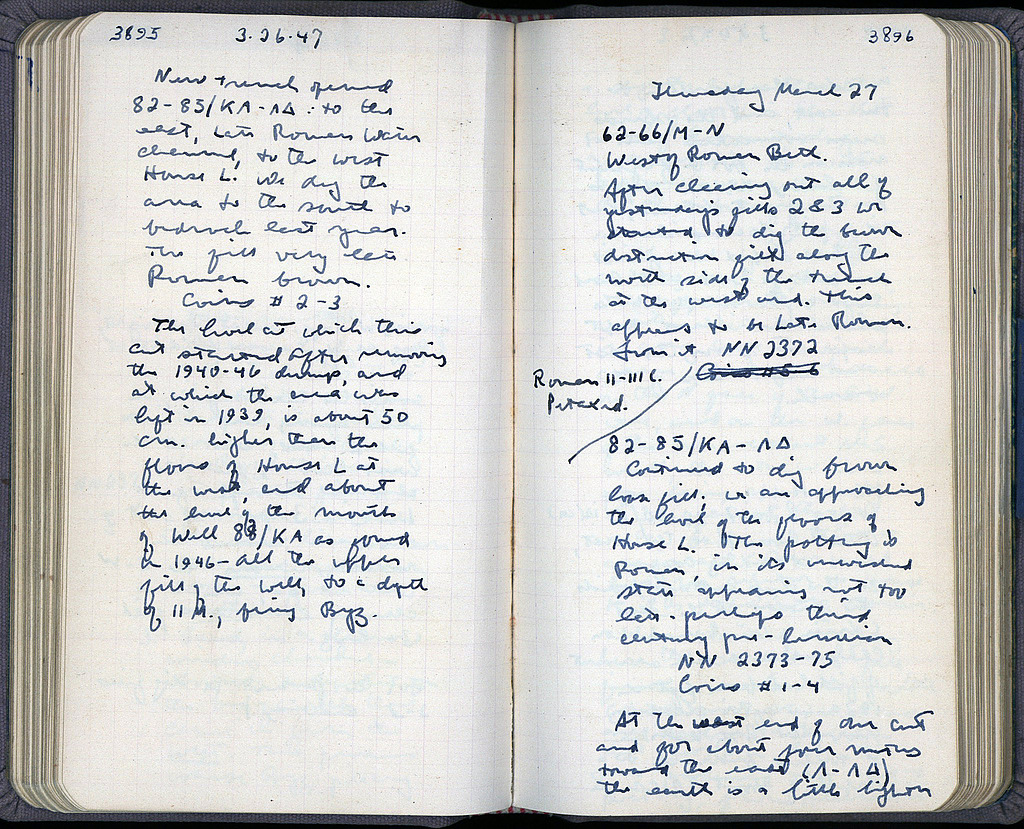 3895 3·26·47
New trench opened
82-85/KA-ΛΔ : to the
east, Late Roman Water
channel, to the west
House L. We dug the
area to the south to
bedrock last year.
The fill very late
Roman brown.
Coins # 2-3
The level at which this
cut started after removing
the 1940-46 dump, and
at which the area was
left in 1939, is about 50
cm. higher than the
floors of House L at
the west, and about
the level of the mouth
of Well 83/KA as found
in 1946 - all the upper
fill of the well, to a depth
of 11 M., being Byz.
3896
Thursday March 27
62-66/M-N
West of Roman Bath.
After cleaning out all of
yesterday's fills 2 & 3 we
started to dig the brown
destruction fill along the
north side of the trench
at the west end. This
appears to be Late Roman.
From it NN 2372
Coins # 5-6
Roman II-III C.
82-85/KA-ΛΔ
Continued to dig brown
loose fill. We are approaching
the level of the floors of
House L. The pottery is
Roman, in its unwashed
state appearing not too
late - perhaps third
century pre-Herulian
NN 2373-75
Coins # 1-4
At the west end of our cut
and for about four meters
toward the east (Λ-ΛΔ)
the earth is a little lighter